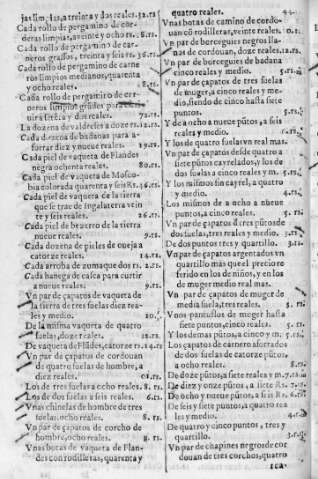 jas lim, las, a treinta y dos reales. 32.rs
Cada rollo de pergamino de cor-
deras limpias, a veinte y ocho rs. 8.rs
Cada rollo de pergamino de car-
neros grassos, treinta y seis rs. 36.rs
Cada rollo de pergamino de carne
ros limpios medianos, quarenta
y ocho reales.
Cada rollo de pergamino de car-
neros limpios
y dos reales. 72.rs
La dozena de valdreses a doze rs. 12.rs
Cada dozena de badanas para a-
forrar diez y nueue reales. 19.rs
Cada piel de vaqueta de Flandes
negra ochenta reales. 80.rs
Cada piel de vaqueta de Mosco-
bia colorada quarenta y seis Rs. 46.rs
Cada piel de vaqueta de la tierra
que se trae de Ingalaterra vein
te y seis reales 26.rs
Cada piel de bezerro de la tierra
nueue reales. 9.rs
Cada dozena de pieles de oueja a
catorze reales. 14.rs
Cada arroba de zumaque dos rs. 2.rs
Cada hanega de casca para curtir
a nueue reales. 9.rs
Vn par de çapatos de vaqueta de
la tierra de tres suelas diez rea-
les y medio. 10.
De la misma vaqueta de quatro
suelas, doze reales. 12.rs
De vaqueta de Flãdes, catorze rs. 14.rs
Vn par de çapatos de cordouan
de quatro suelas de hombre, a
diez reales.
Los de tres suelas a ocho reales. 8. rs
Los de dos suelas a seis reales. 6.rs
Vnas chinelas de hombre de tres
suelas, ocho reales. 8. rs
Vn par de çapatos de corcho de
hombre, ocho reales. 8. rs
Vnas botas de vaqueta de Flan-
des con rodilleras, quarenta y
quatro reales. 44.
Vnas botas de camino de cordo-
uan cõ rodilleras, veinte reales.
Vn par de borceguies negros lla-
nas de cordouan, doze reales. 12.rs
Vn par de borceguies de badana
cinco reales y medio. 5.rs
Vn par de çapatos de tres suelas
de muger, a cinco reales y me-
dio, siendo de cinco hasta siete
puntos.
De a ocho a nueue pũtos, a seis
reales y medio.
Y los de quatro suelas vn real mas.
Vn par de çapatos desde quatro a
siete pũtos cayrelados, y los de
dos suelas a cinco reales y m. 5.rs
Y los mismos sin cayrel, a quatro
y medio. 4.rs
Los mismos de a ocho a nueue
puntos, a cinco reales. 5. rs
Vn par de çapatos d tres pũtos de
dos suelas, tres reales y medio. 3.rs
De dos puntos tres y quartillo. 3.rs
Vn par de çapatos argentados vn
quartillo mas que el precio re
ferido en los de niños, y en los
de muger medio real mas.
Vn par de çapatos de muger de
media suela, tres reales.
Vnos pantuflos de muger hasta
siete puntos, cinco reales. 5. rs
Y los demas pũtos, a cinco y m. 5. rs
Los çapatos de carnero aforrados
de dos suelas de catorze pũtos,
a ocho reales. 8.
De doze pũtos, siete reales y m. 7.rs
De diez y onze pũtos, a siete Rs. 7.
De ocho y nueue pũtos, a seis Rs. 6.
De seis y siete puntos, a quatro rea
les y medio. 4.rs
De quatro y cinco puntos, tres y
quartillo. 3.rs
Vn par de chapines negros de cor
douan de tres corchos, quatro